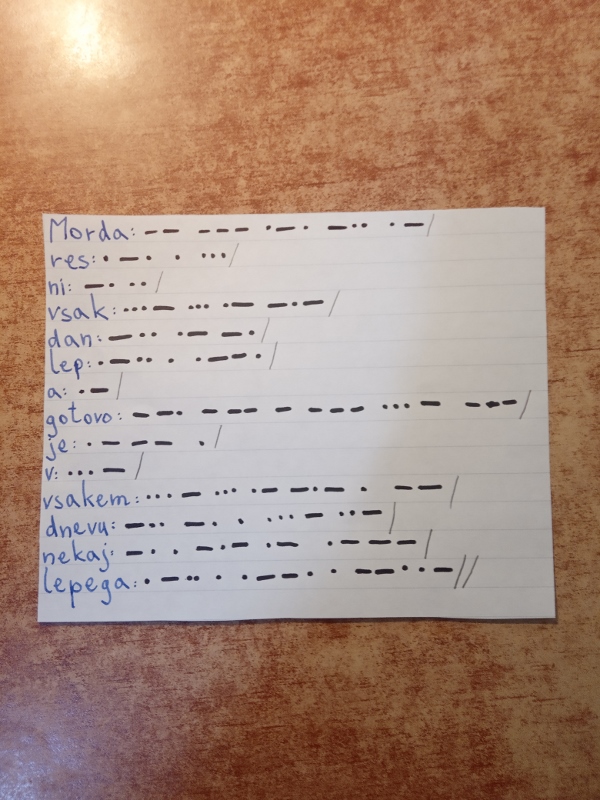 Morda: -- --- .-. -.. .- /
res: .-. . ... /
ni: -. .. /
vsak: ...- ... .- -.- /
dan: -.. .- -. /
lep: .-.. . .--. /
a: .- /
gotovo: --. --- - --- ...- --- /
je: .--- . /
v: ...- /
vsakem: ...- ... .- -.- . -- /
dnevu: -.. -. . ...- ..- /
nekaj: -. . -.- .- .--- /
lepega: .-.. . .--. . --. .- //